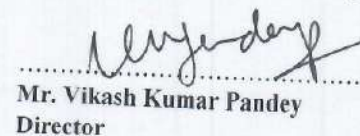 Mr. Vikash Kumar Pandey
Director